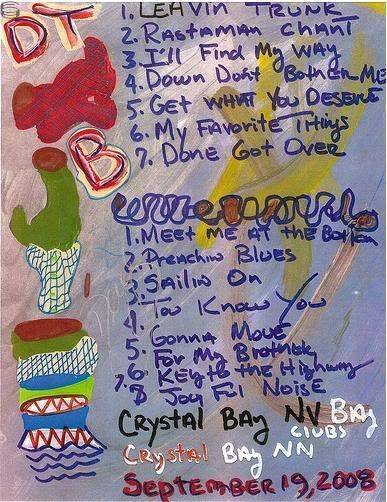 DT
B
1. LEAVIN TRUNK
2. RASTAMAN CHANT
3. I'll Find My Way
4. Down Dont Bother ME
5. GET WHAT YOU DESERVE
6. My FAVORITE THINGS
7. DONE GOT OVER
1. MEET ME AT the Bottom
2. Preachin BLUES
3. SAILIN ON
Too Know You
4. GONNA MOVE
5. For My Brother
6. KEY to the Highway
7. 8 Joy Ful NOISE
CRYSTAL BAY NV BAY
CLUBS
Crystal BAY NN
SEPTEMBER 19, 2008